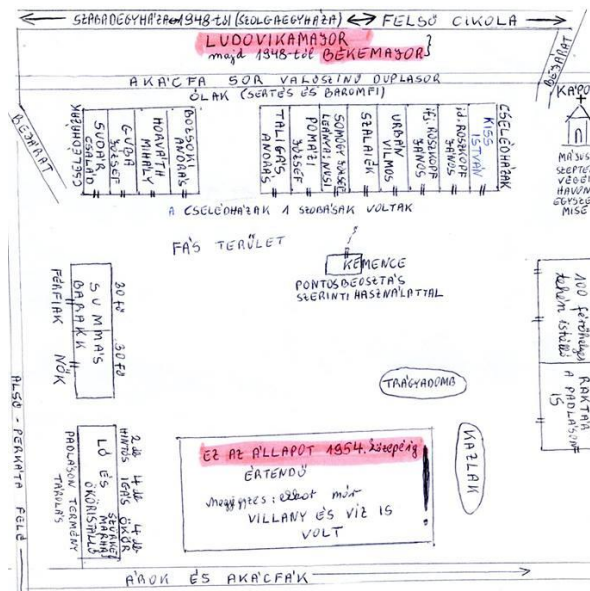 SZABADEGYHÁZA 1948-tól (SZOLGAEGYHÁZA)
FELSŐ CIKOLA
LUDOVIKAMAJOR
majd 1948-tól BÉKEMAJOR}
AKÁCFA SOR VALÓSZÍNŰ DUPLASOR
ÓLAK (SERTÉS ÉS BAROMFI)
BEJÁRAT
BEJÁRAT
CSELÉDHÁZAK
SUDÁR
CSALÁD
GUBA
JÓZSEF
HORVÁTH
MIHÁLY
BOZSOKI
ANDRÁS
TÁLIGÁS
ANDRÁS
POMÁZI
JÓZSEF
SOMOGYI JÓZSEF
SZALAIÉK
URBÁN
VILMOS
ifj. ROSZKOPF
JÁNOS
id. ROSZKOPF
JÁNOS
KISS
ISTVÁN
CSELÉDHÁZAK
KÁPO
MÁJUS
SZEPTE
VÉGÉI
HAVON
EGYSZE
MISE
A CSELÉDHÁZAK 1 SZOBÁSAK VOLTAK
FÁS TERÜLET
KEMENCE
PONTOS BEOSZTÁS
SZERINTI HASZNÁLATTAL
30 fő 30 fő
SUMMÁS
BARAKK
FÉRFIAK NŐK
100 férőhelyes
tehén istálló
RAKTÁR
A PADLÁSON
IS
TRÁGYADOMB
KAZLAK
ALSÓ - PERKÁTA FELÉ
2 db 4 db 4 db
HINTÓS IGÁS ÖKÖR
LÓ ÉS
ÖKÖRISTÁLLÓ
SZÜRKE
MARHA
PADLÁSON TERMÉNY
TÁROLÁS
EZ AZ ÁLLAPOT 1954. közepéig
ÉRTENDŐ
Megjegyzés: ekkor már
VILLANY ÉS VÍZ IS
VOLT
ÁROK ÉS AKÁCFÁK